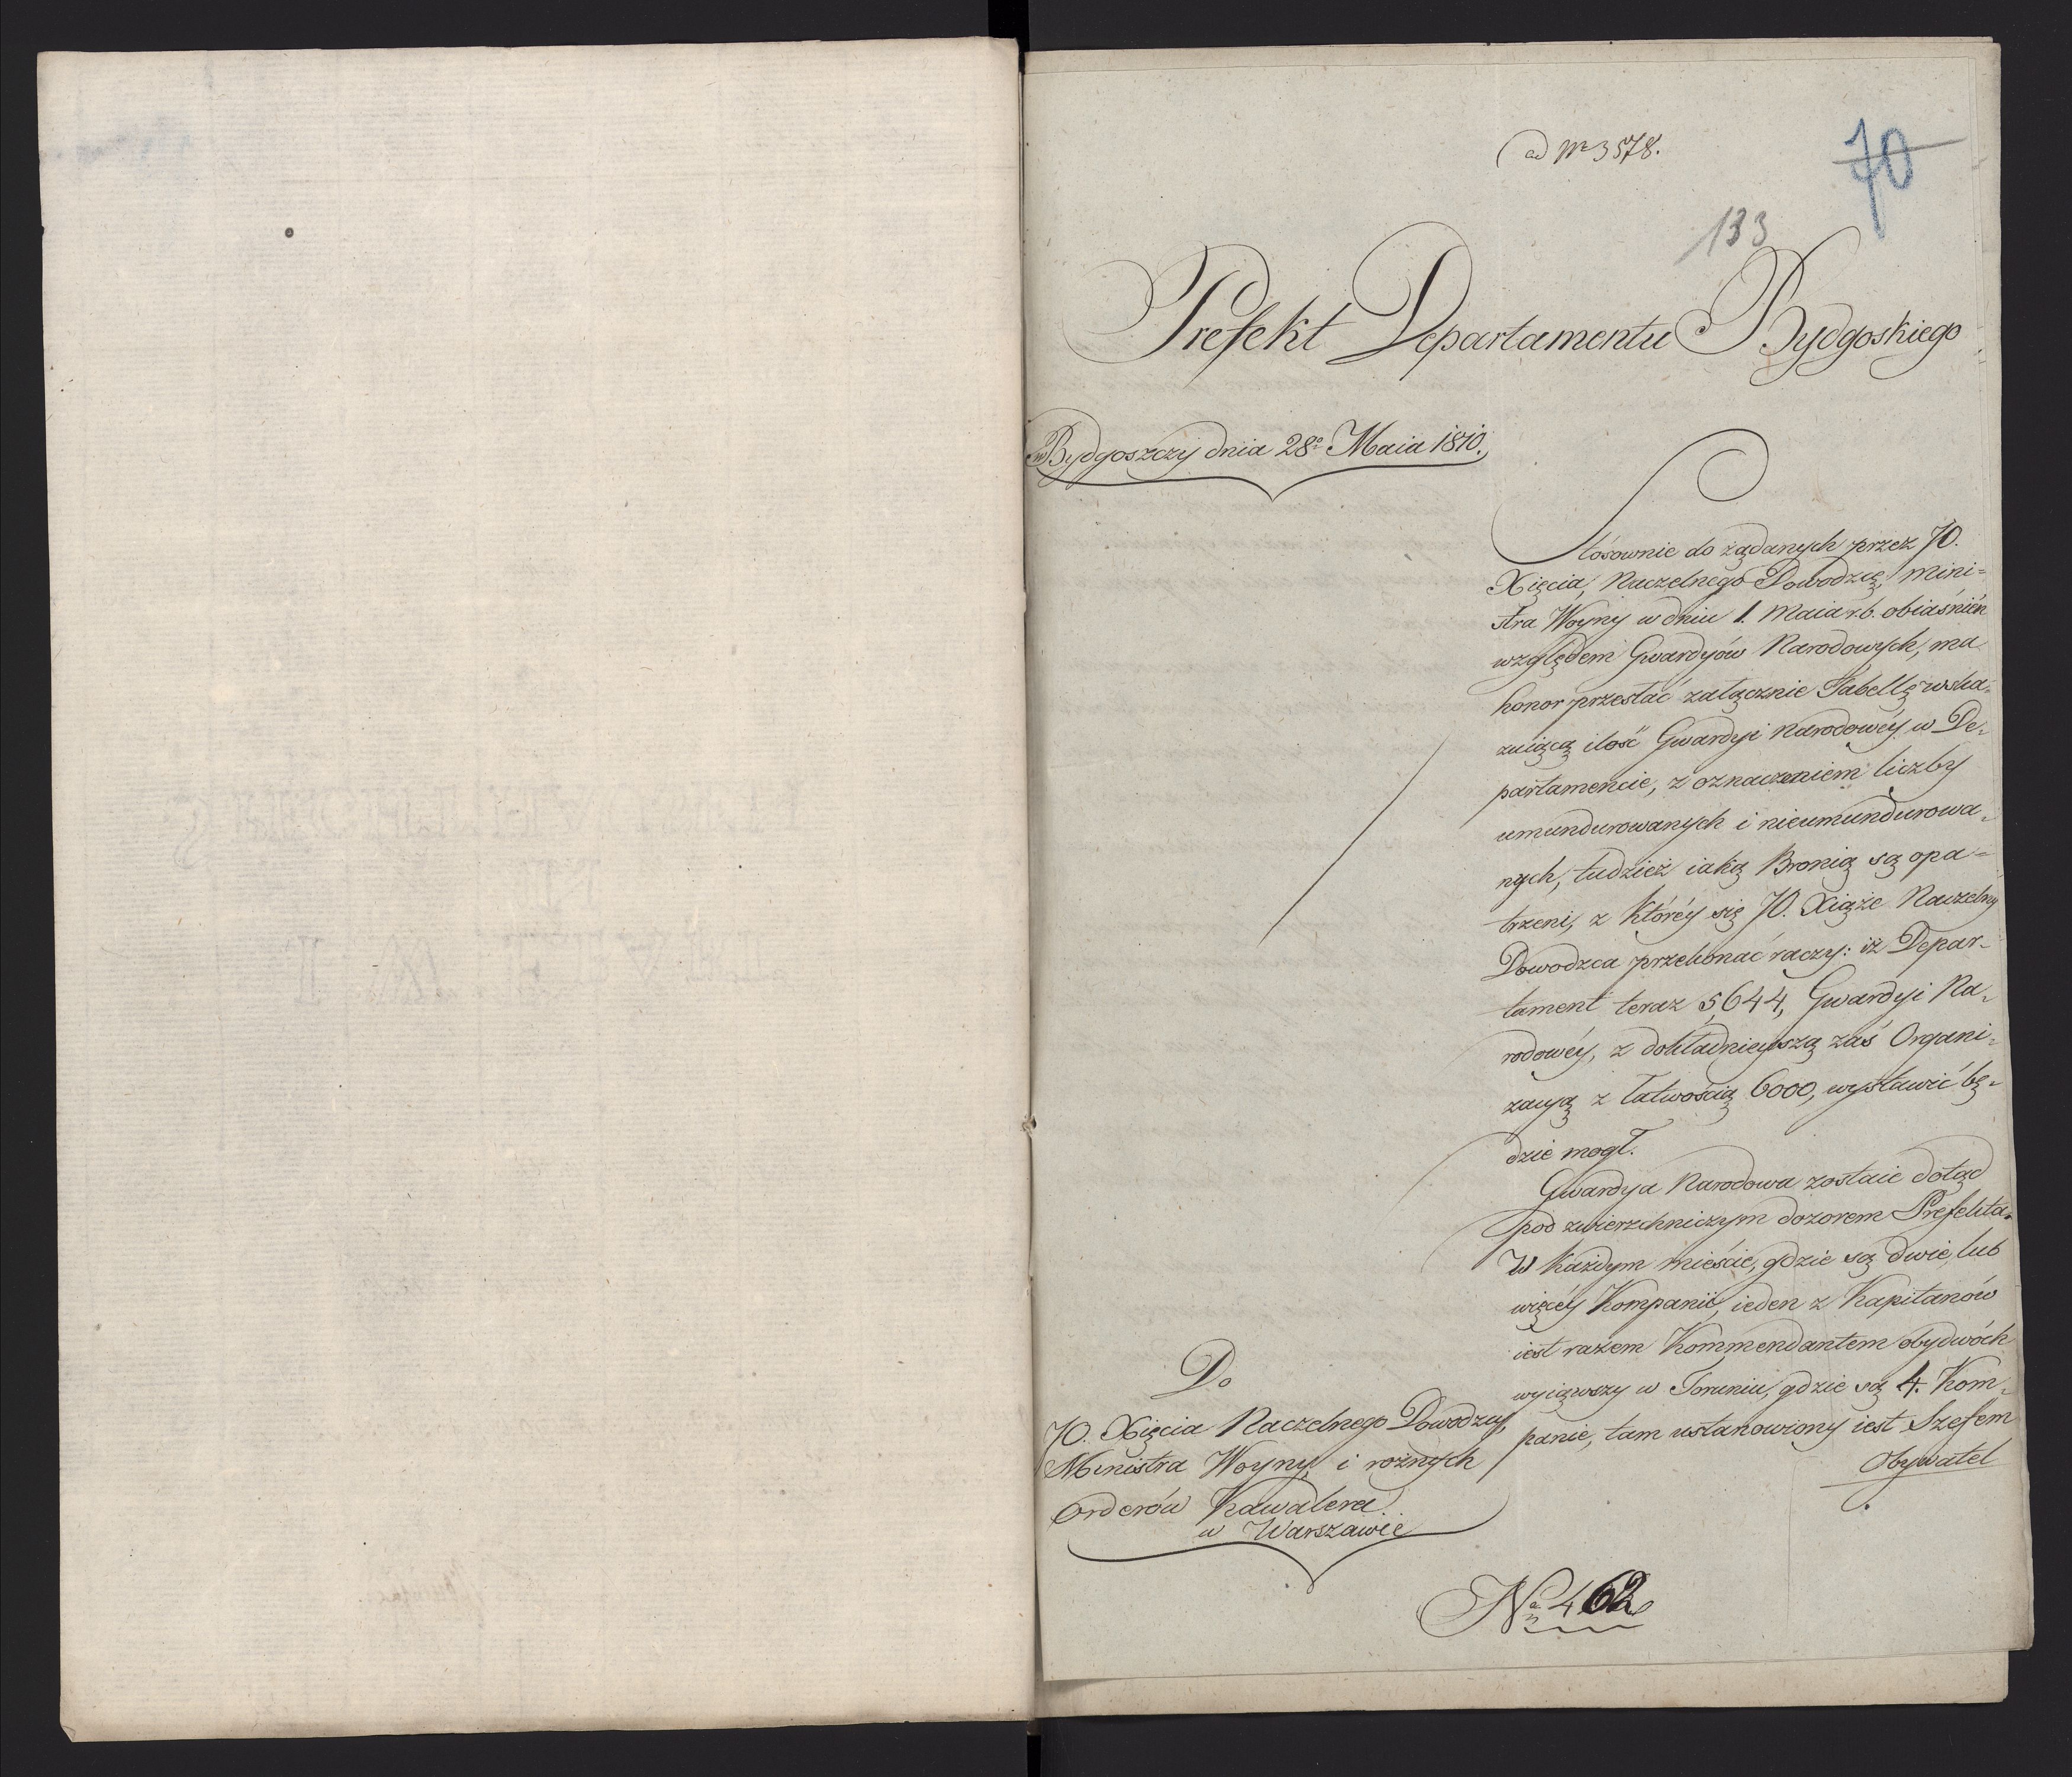 ad Nr 3578.
70
133
Prefekt Departamentu Bydgoskiego
w Bydgoszczy dnia 28o Maia 1810.
Stósownie do żądanych przez JO.
Xięcia, Naczelnego Dowodzcę, mini=
stra Woyny w dniu 1. Maia r.b. obiaśnień
względem Gwardyów Narodowych, ma
honor przesłać załącznie Tabellę wska=
zuiącą ilość Gwardyi Narodowéy w De=
partamencie, z oznaczeniem liczby
umundurowanych i nieumundurowa=
nych, tudzież iaką Bronią są opa=
trzeni, z któréy się JO. Xiąże Naczelny
Dowodzca przekonać raczy: iż Depar=
tament teraz 5,644, Gwardyi Na=
rodowéy, z dokładnieyszą zaś Organi=
zacyą z łatwością 6000, wystawić bę=
dzie mogł.
Gwardya Narodowa zostaie dotąd
pod zwierzchniczym dozorem Prefekta.
W każdym mieście, gdzie są dwie, lub
więcéy Kompanii, ieden z Kapitanów
iest razem Kommendantem obydwóch
wyiąwszy w Toruniu, gdzie są 4. Kom=
panie, tam ustanowiony iest Szefem
Obywatel
Do
JO. Xięcia Naczelnego Dowodzcy,
Ministra Woyny i rożnych
Orderów Kawalera
w Warszawie
No 462